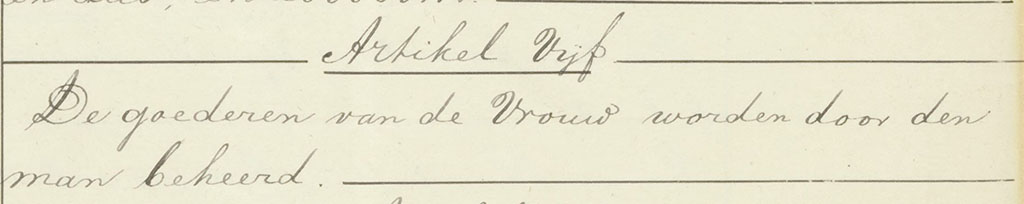 Artikel Vijf
De goederen van de Vrouw worden door den
man beheerd.